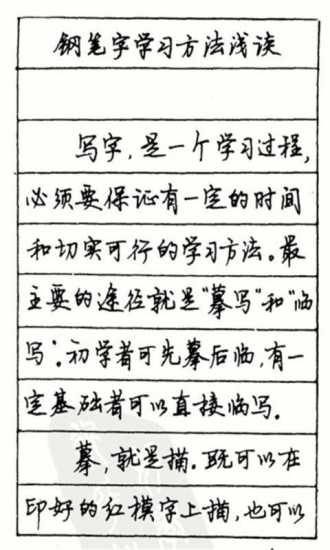 钢笔字学习方法浅谈
写字,是一个学习过程,
必须要保证有一定的时间
和切实可行的学习方法。最
主要的途径就是“摹写”和“临
写”。初学者可先摹后临,有一
定基础者可以直接临写。
摹,就是描。既可以在
印好的红模字上描,也可以